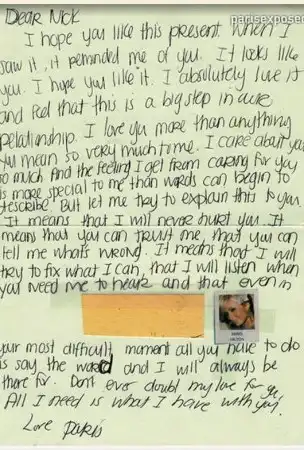 parisexpose
Dear Nick
I hope you like this present. When I
saw it, it reminded me of you. It looks like
you. I hope you like it. I absolutely love it
and feel that this is a big step in our
relationship. I love you more than anything
you mean so very much to me. I care about you
so much And the feeling I get from caring for you
is more special to me than words can begin to
describe. But let me try to explain this to you.
It means that I will never hurt you. It
means that you can trust me, that you can
tell me whats wrong. It means that I will
try to fix what I can, that I will listen when
you need me to hear and that even in
your most difficult moment all you have to do
is say the word and I will always be
there for. Dont ever doubt my love for you
All I need is what I have with you.
Love Paris